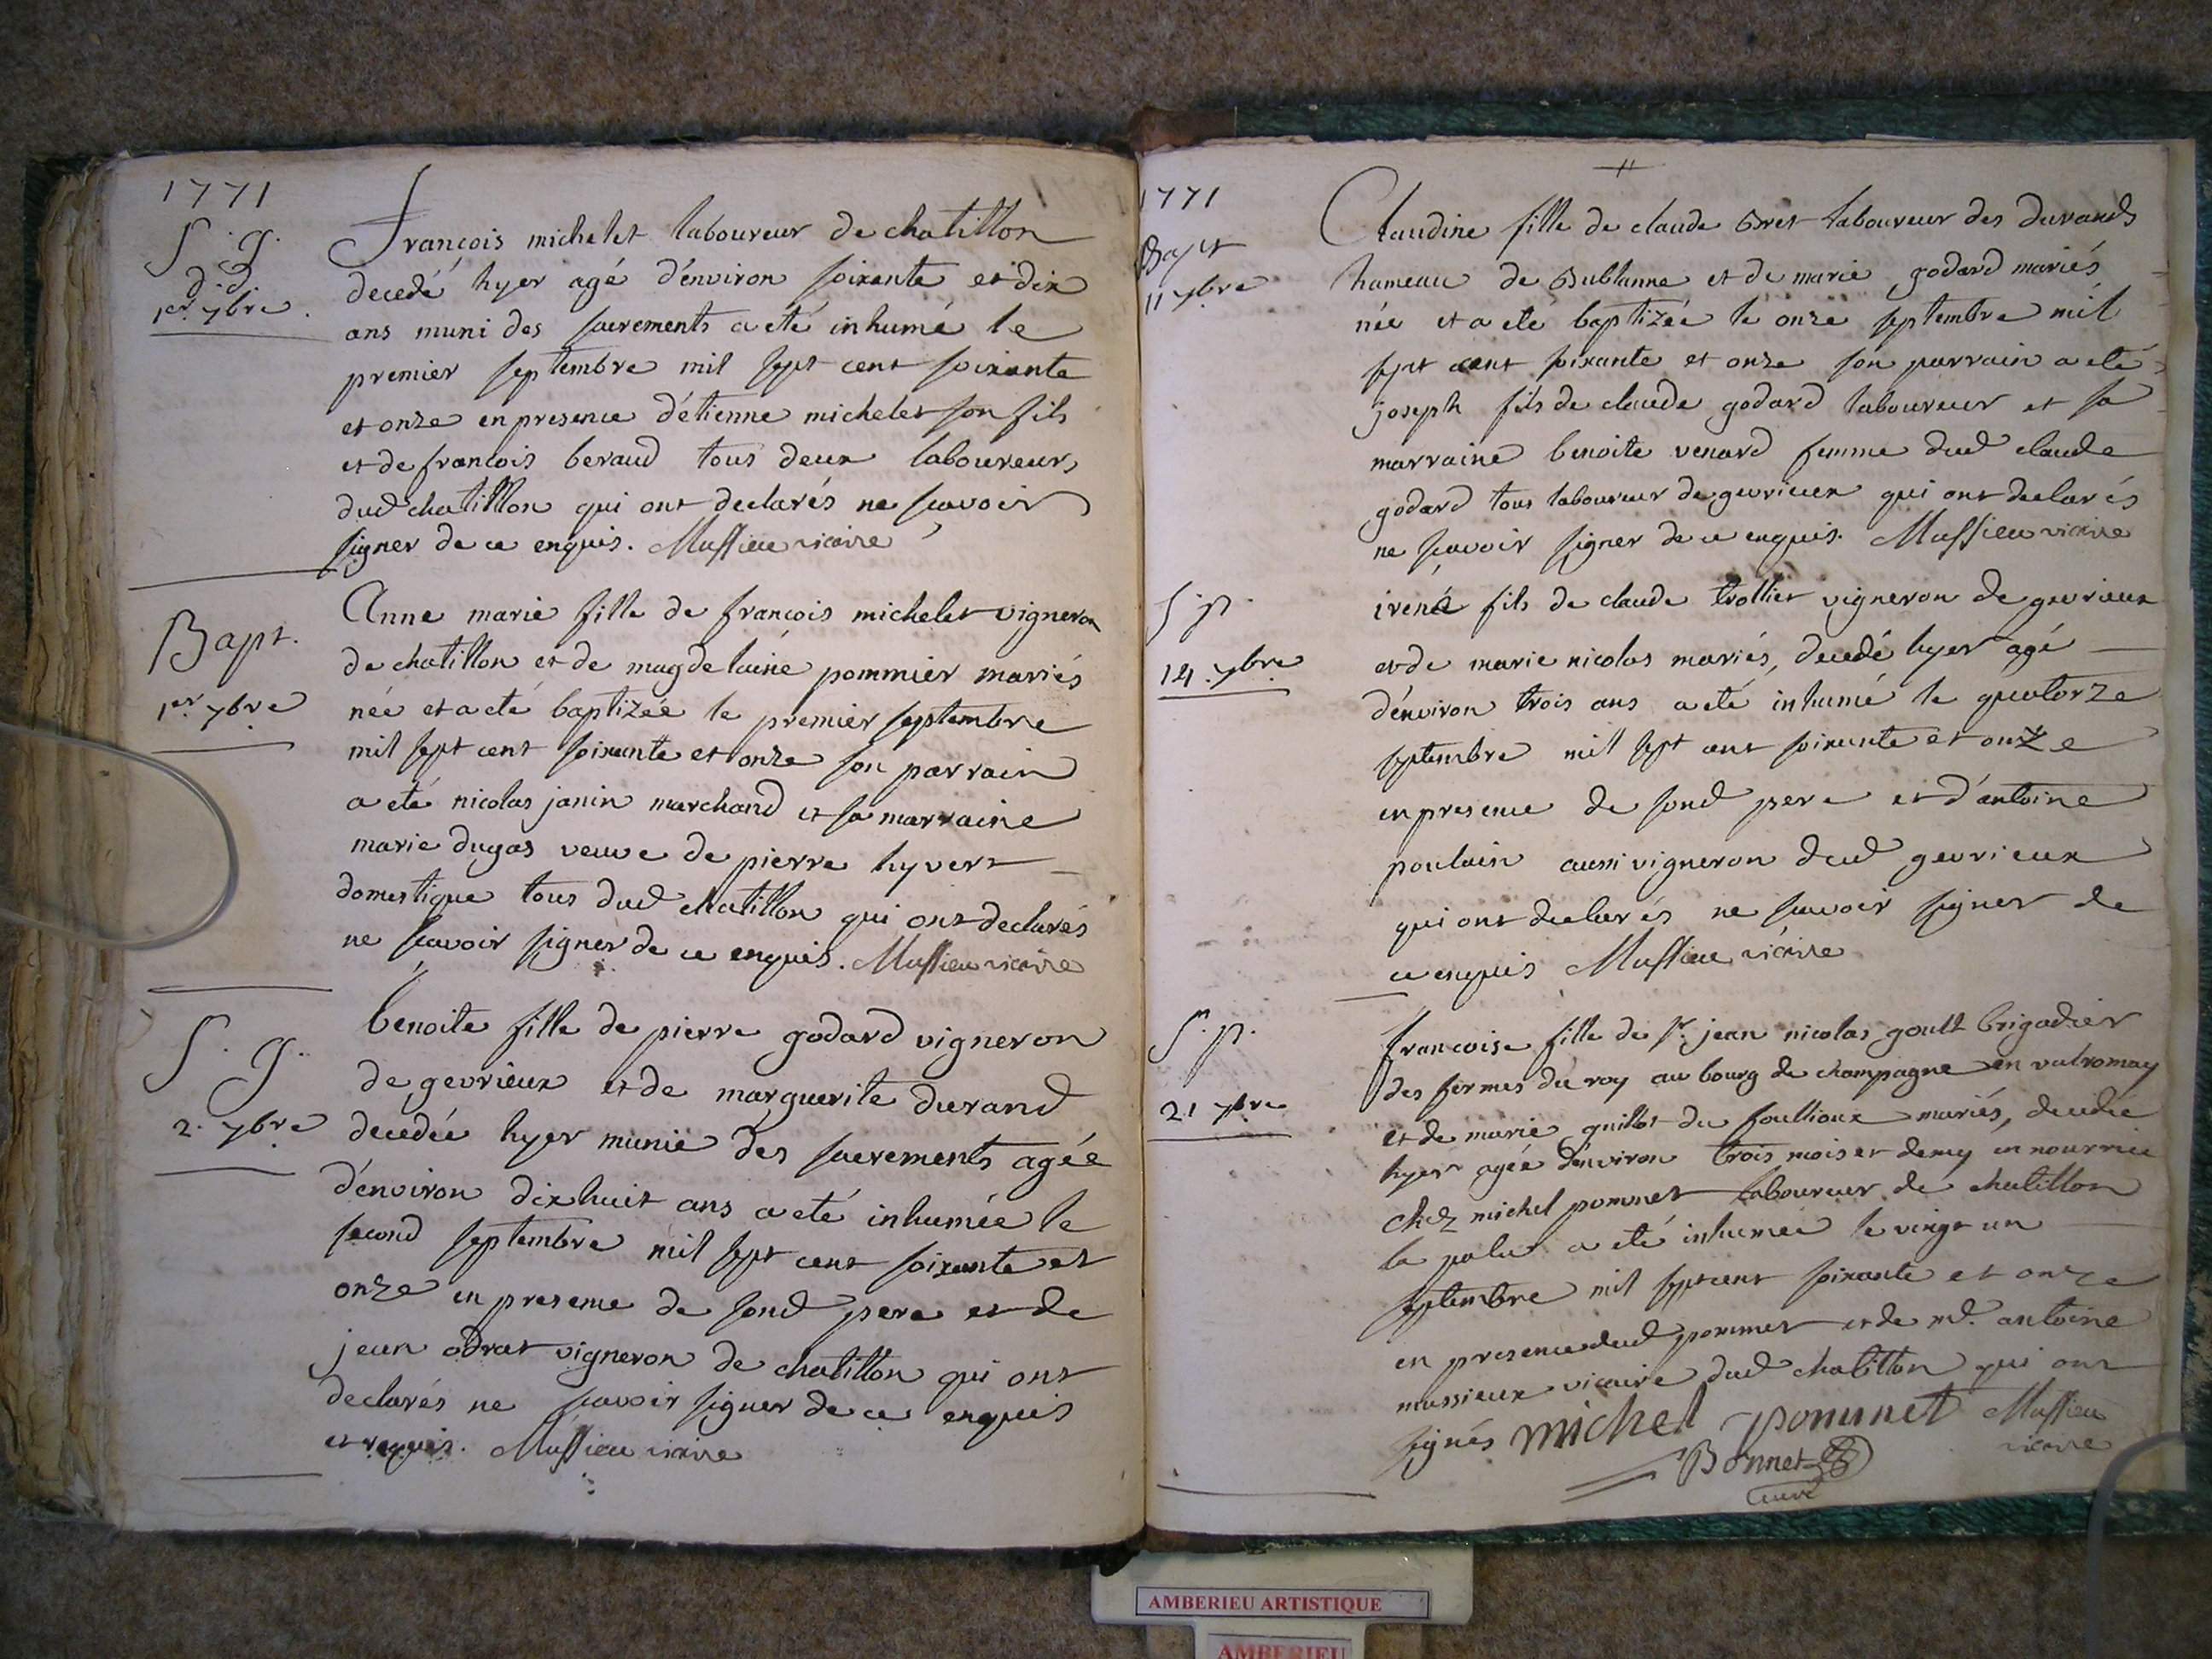 1771
S. g.
d. d.
1er. 7bre.
François michelet laboureur de chatillon
decedé hyer agé d'environ soixante et dix
ans muni des sacrements a eté inhumé le
premier septembre mil sept cent soixante
et onze en presence d'étienne michelet son fils
et de francois beraud tous deux laboureurs
dud chatillon qui ont declarés ne scavoir
signer de ce enquis. Massieu vicaire
Bapt.
1er. 7bre
Anne marie fille de françois michelet vigneron
de chatillon et de magdelaine pommier mariés
née et a eté baptizée le premier septembre
mil sept cent soixante et onze son parrain
a eté nicolas janin marchand et sa marraine
marie dugas veuve de pierre hyvert
domestique tous dud chatillon qui ont declarés
ne scavoir signer de ce enquis. Massieu vicaire
S. g.
2. 7bre
benoite fille de pierre godard vigneron
de gevrieux et de marguerite durand
decedée hyer munie des sacrements agée
d'environ dixhuit ans a eté inhumée le
second septembre mil sept cent soixante et
onze en presence de sond pere et de
jean odrat vigneron de chatillon qui ont
declarés ne scavoir signer de ce enquis
et requis. Massieu vicaire
1771
Bapt
11 7bre
Claudine fille de claude Bret laboureur des durands
hameau de Bublanne et de marie godard mariés
née et a eté baptizée le onze septembre mil
sept cent soixante et onze son parrain a eté
joseph fils de claude godard laboureur et sa
marraine benoite venard femme dud claude
godard tous laboureur de gevrieux qui ont declarés
ne scavoir signer de ce enquis. Massieu vicaire
S. p.
14. 7bre
irené fils de claude trollier vigneron de gevrieux
et de marie nicolas mariés, decedé hyer agé
d'environ trois ans a eté inhumé le quatorze
septembre mil sept cent soixante et onze
en presence de sond pere et d'antoine
poulain aussi vigneron dud gevrieux
qui ont declarés ne scavoir signer de
ce enquis Massieu vicaire
S. p.
21 7bre
francoise fille de sr. jean nicolas goult brigadier
des fermes du roy au bourg de champagne en valromay
et de marie guillot du foullioux mariés, decedée
hyer agée d'environ trois mois et demy en nourrice
chez michel pommet laboureur de chatillon
la palud a eté inhumée le vingt un
septembre mil sept cent soixante et onze
en presence dud pommet et de md. antoine
massieux vicaire dud chatillon qui ont
signés michel pommet Massieu
vicaire
Bonnet
Curé
AMBERIEU ARTISTIQUE
AMBERIEU